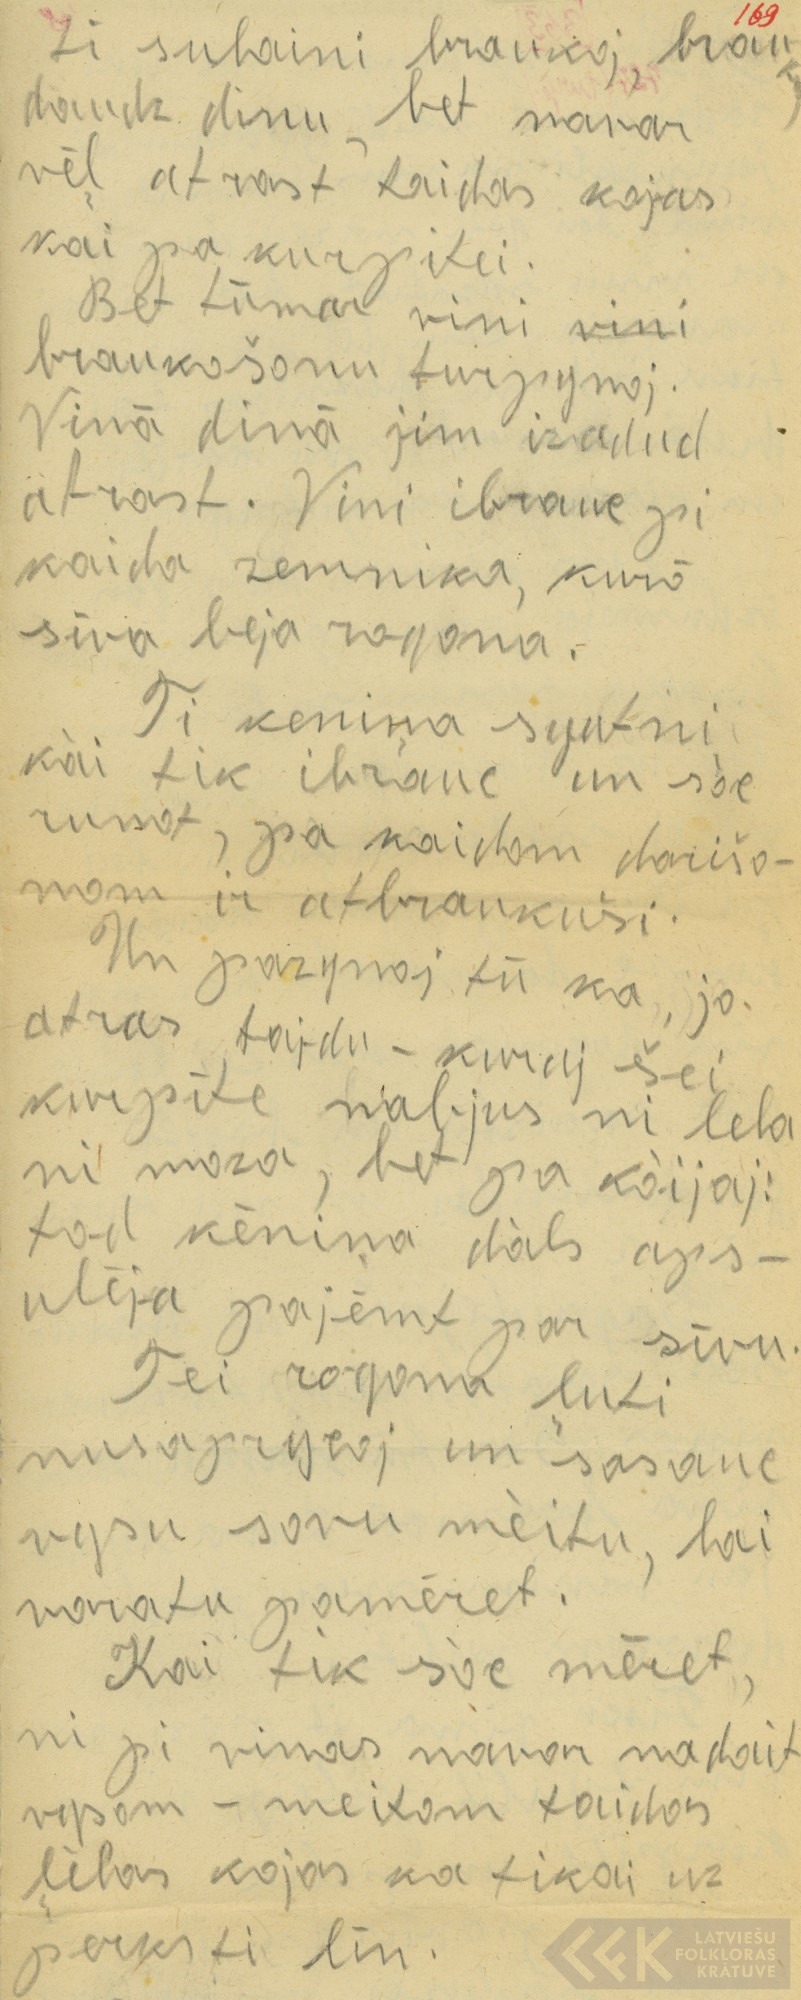 169
ti sulaini braukoj, brau
daudz dinu, bet navar
vēļ atrast taidas kojas
kai pa kurpitei.
Bet tūmar vini vini
braukošonu turpynoj.
Vinā dinā jim izadud
atrast. Vini ibrauc pi
kaida zemnika, kurō
sīva beja rogona.
Ti keniņa syutni
kài tik ibrauc un sòc
runot, pa kaidom darišo-
nom ir atbraukuši.
Un pazynoj tū ka, jo
atras taidu - kuraj šei
kurpīte nabjus ni lela
ni moza, bet pa kòijaj:
tod kēniņa dàls aps-
ulēja pajēmt par sīvu.
Tei rogona ļuti
nusaprīcoj un sasauc
vysu sovu mèitu, lai
varatu pamēret.
Kai tik sòc mēret,
ni pi vinas navar nadait
vysom - meitom taidas
ļèlas kojas ka tikai uz
perksti līn.
LATVIEŠU
FOLKLORAS
KRĀTUVE